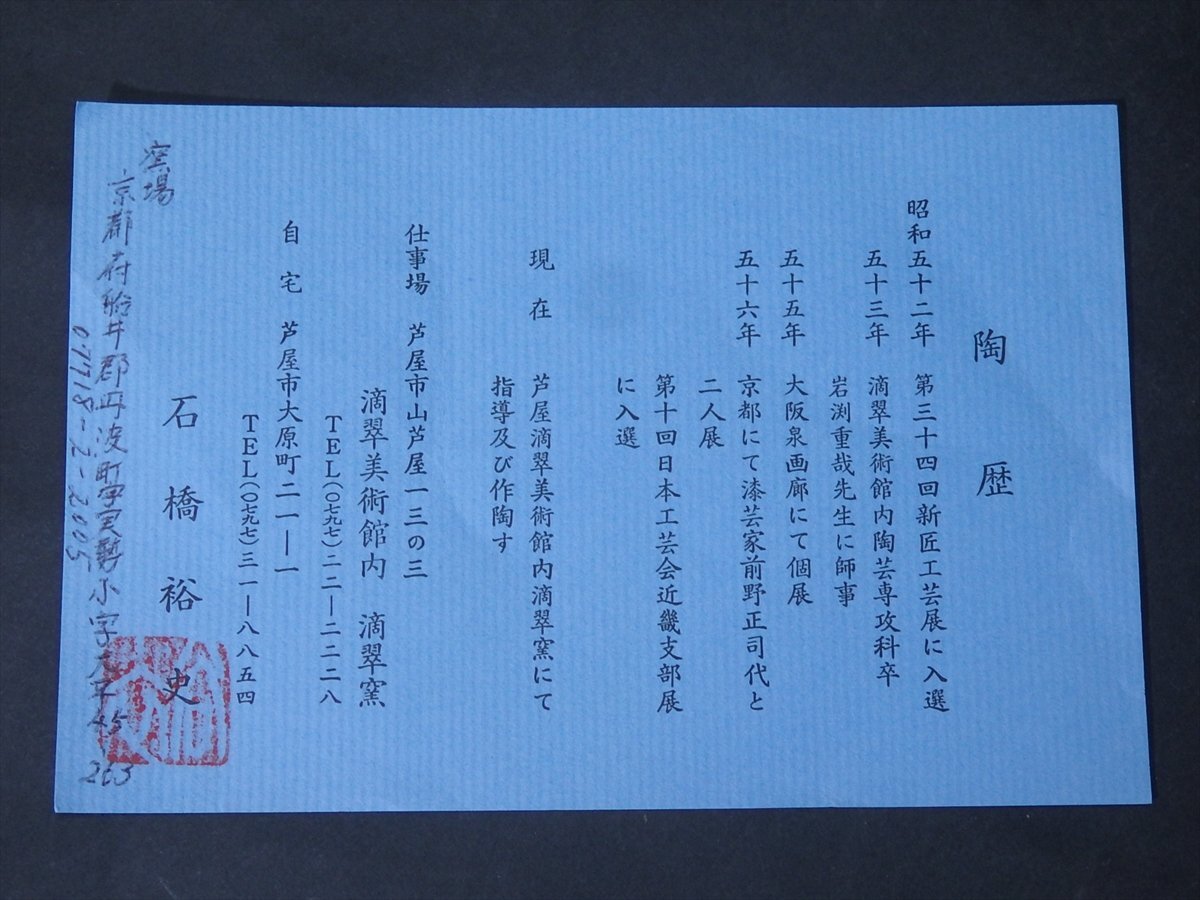 陶歴
昭和五十二年 第三十四回新匠工芸展に入選
五十三年 滴翠美術館内陶芸専攻科卒
岩渕重哉先生に師事
五十五年 大阪泉画廊にて個展
五十六年 京都にて漆芸家前野正司代と
二人展
第十回日本工芸会近畿支部展
に入選
現在 芦屋滴翠美術館内滴翠窯にて
指導及び作陶す
仕事場 芦屋市山芦屋一三の三
滴翠美術館内 滴翠窯
TEL(〇七九七)二二―二二二八
自宅 芦屋市大原町二一―一
TEL(〇七九七)三一―八八五四
石橋裕史
窯場
京都府船井郡丹波町字実勢小字 45-263
07718-2-2005